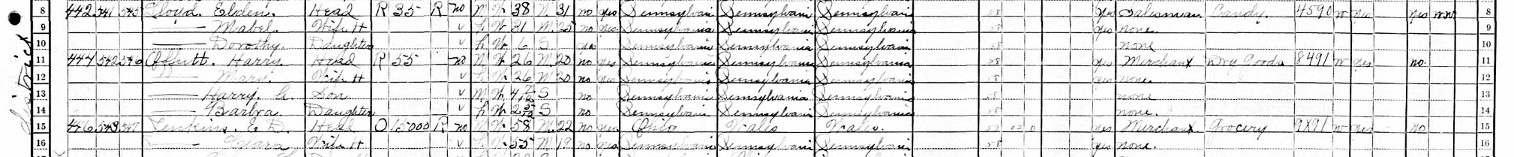 8 442 541 545 Cloyd, Elden. Head R 35 R no M W 38 M 31 no yes Pennsylvania Pennsylvania Pennsylvania 58 Yes Salesman Candy. 4590 W yes Yes WW 8
9 —— Mabel. Wife H V F W 31 M 25 no yes Pennsylvania Pennsylvania Pennsylvania 58 yes none. 9
10 —— Dorothy. Daughter V F W 6 S yes Pennsylvania Pennsylvania Pennsylvania 58 none 10
11 444 542 546 Offutt. Harry Head R 55 no M W 26 M 20 no yes Pennsylvania Pennsylvania Pennsylvania 58 yes Merchant Dry Goods 8491 W yes no. 11
12 —— Mary Wife H V F W 26 M 20 no yes Pennsylvania Pennsylvania Pennsylvania 58 yes none. 12
13 —— Harry Son V M W S no Pennsylvania Pennsylvania Pennsylvania 58 none 13
14 —— Barbra. Daughter V F W S no Pennsylvania Pennsylvania Pennsylvania 58 none. 14
15 446 543 547 Jenkins, E. D. Head O 15000 R no M W 58 M 22 no yes Ohio Wales Wales. Yes Merchant Grocery 9X91 W yes no 15
16 —— Wife H V F W 55 M 19 no yes Pennsylvania Pennsylvania Pennsylvania 58 yes none. 16
District